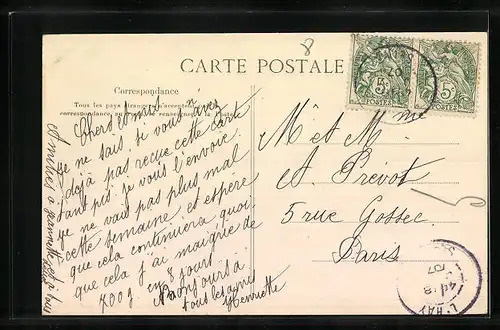 8
CARTE POSTALE
Correspondance
Tous les pays étrangers n'acceptent pas la
correspondance au
Chers amis
je ne sais si vous avez
déjà pas recue cette carte
tant pis je vous l'envoie
je ne vais pas plus mal
cette semaine et espere
que cela continuera quoi-
que cela j'ai maigrie de
700g en 8 jours
Bonjours à
tous les amis
Henriette
Amitiés à Jeannette et à tous
M. et Mme
A. Prévot
5 rue Gossec
Paris
5
5c
POSTES
5c
POSTES
20
L'HAY
07